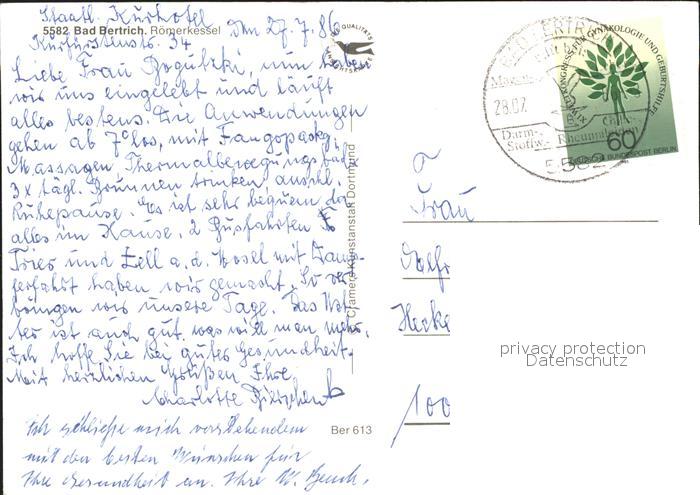 Staatl. Kurhotel
5582 Bad Bertrich. Römerkessel
Den 27.7.86
Kurfürstenstr. 34
Liebe Frau Bogutzki, nun haben
wir uns eingelebt und läuft
alles bestens. Die Anwendungen
gehen ab 7° los, mit Fangopackg,
Massagen Thermalbewegungsbad
3x tägl. Brunnen trinken anschl.
Ruhepause. Es ist sehr bequem da
alles im Hause. 2 Busfahrten
Trier und Zell a. d. Mosel mit Damp-
ferfahrt haben wir gemacht. So ver-
bringen wir unsere Tage. Das Wet-
ter ist auch gut was will man mehr.
Ich hoffe Sie bei guter Gesundheit.
Mit herzlichen Grüßen Ihre
Charlotte
Ich schließe mich vorstehendem
mit den besten Wünschen für
Ihre Gesundheit an. Ihre
Ber 613
Cramers Kunstanstalt Dortmund
BAD BERTRICH
Magen-
28.07.
Darm-
Stoffw.
Rheumatismen
5582
KONGRESS FÜR GYNÄKOLOGIE UND GEBURTSHILFE
60
DEUTSCHE BUNDESPOST BERLIN
Frau
100
privacy protection
Datenschutz